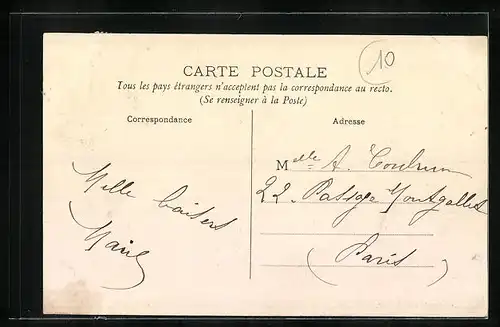 10
CARTE POSTALE
Tous les pays étrangers n'acceptent pas la correspondance au recto.
(Se renseigner à la Poste)
Correspondance
Adresse
Mille baisers
Melle A.
22 - Passage Montgallet
(Paris)